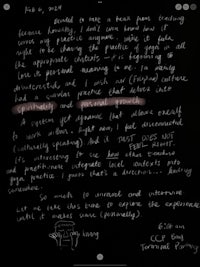 Feb 6, 2024
Decided to take a break from teaching
because honestly, I don't even know how if
seems my practice anymore - while it feels
right to be sharing the practice of yoga in all
the appropriate contexts - it is beginning to
lose its personal meaning to me. I'm merely
disinterested, and I wish our culture
had a similar practice that delves into
spirituality and personal growth.
A system yet dynamic that allows oneself
to work within. Right now, I feel disconnected
(culturally speaking) and it JUST DOES NOT
FEEL RIGHT.
It's interesting to see how other teachers
and practitioners integrate local contexts into
yoga practice. I guess that's a direction... heading
somewhere.
So much to unravel and determine
Let me take this time to explore the experience
until it makes sense (personally)
6:10 am
CCF
Terminal